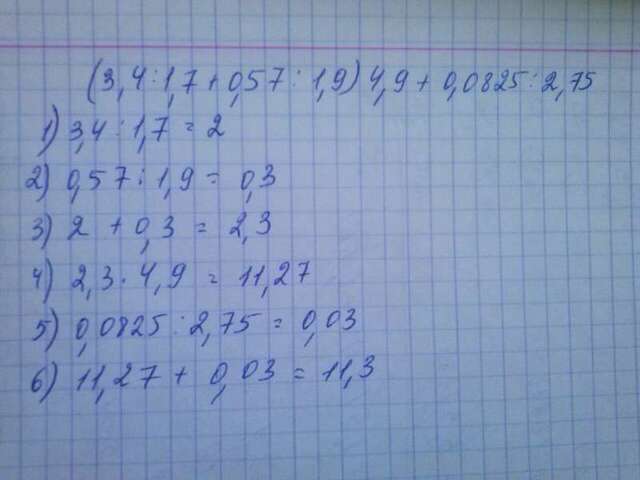 (3,4:1,7+0,57:1,9)4,9+0,0825:2,75
1) 3,4:1,7=2
2) 0,57:1,9=0,3
3) 2+0,3=2,3
4) 2,3·4,9=11,27
5) 0,0825:2,75=0,03
6) 11,27+0,03=11,3